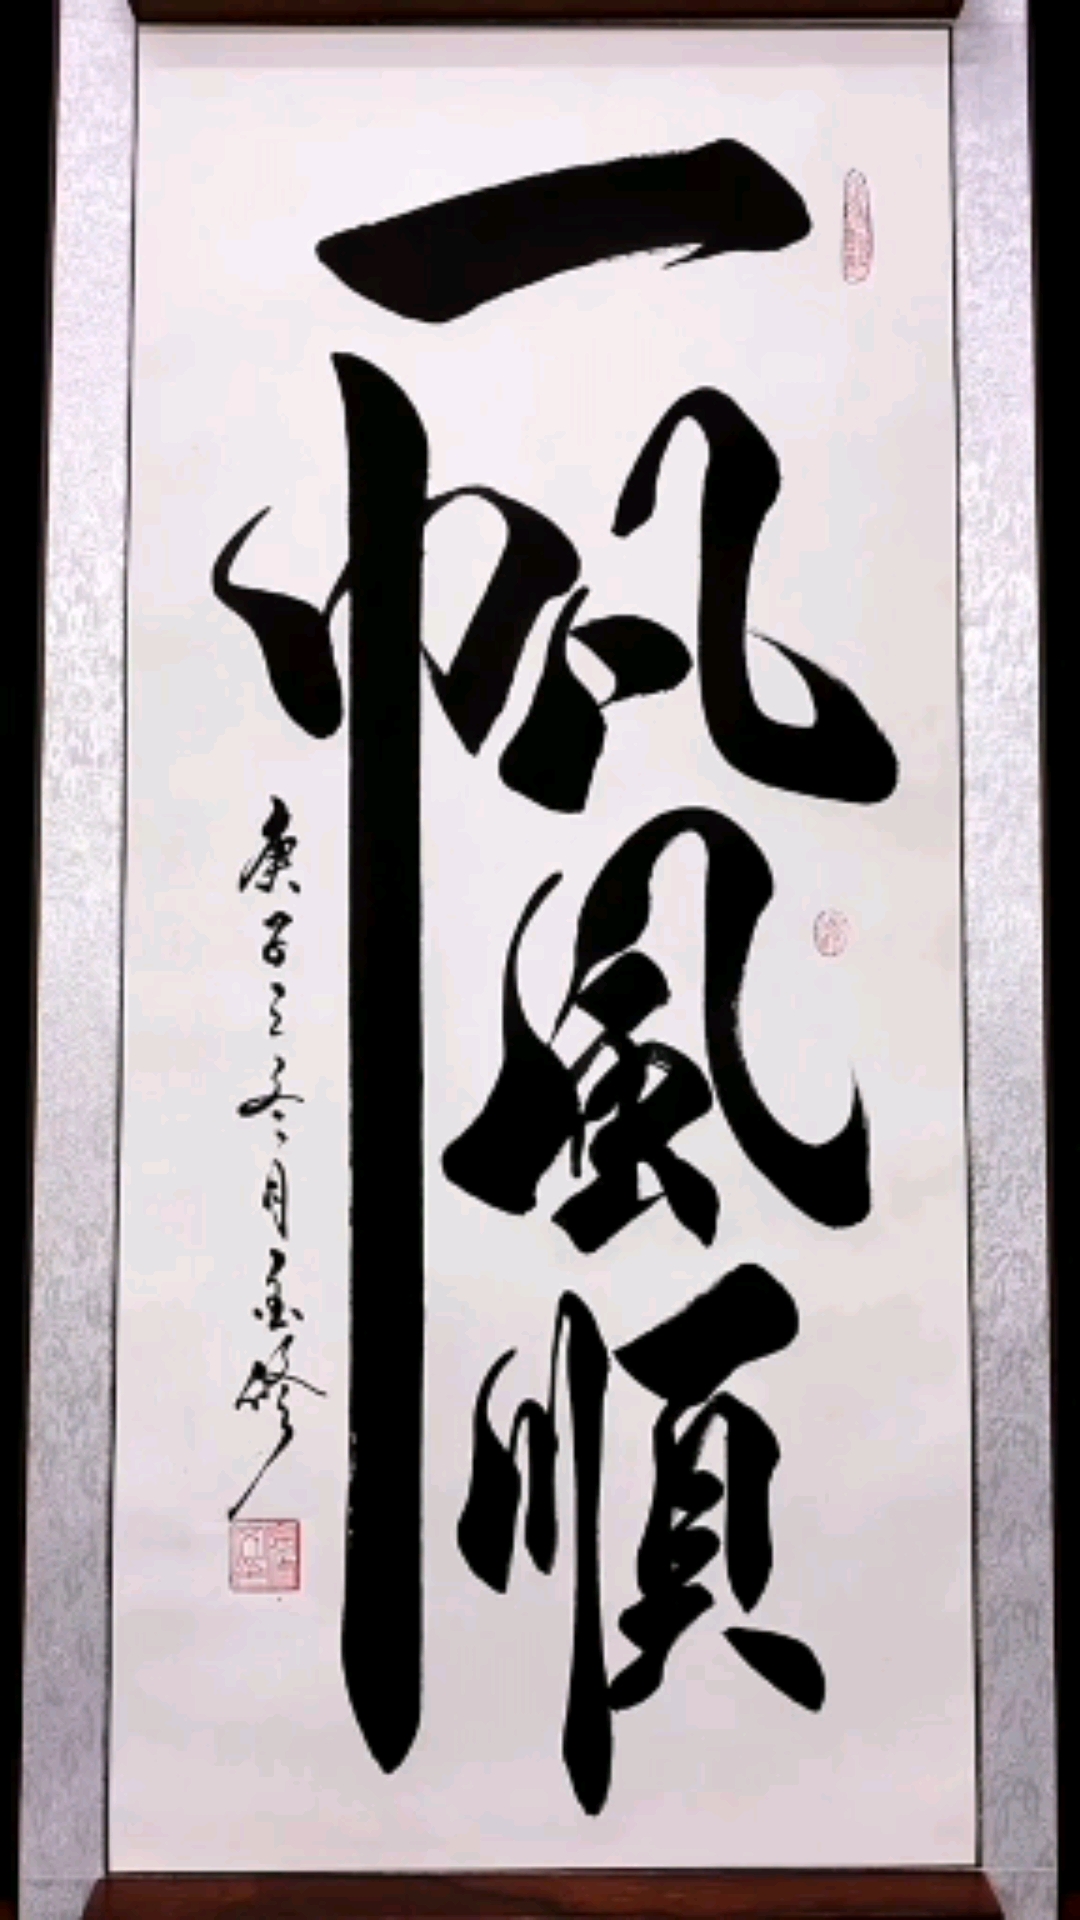 一帆風順
庚子之冬月